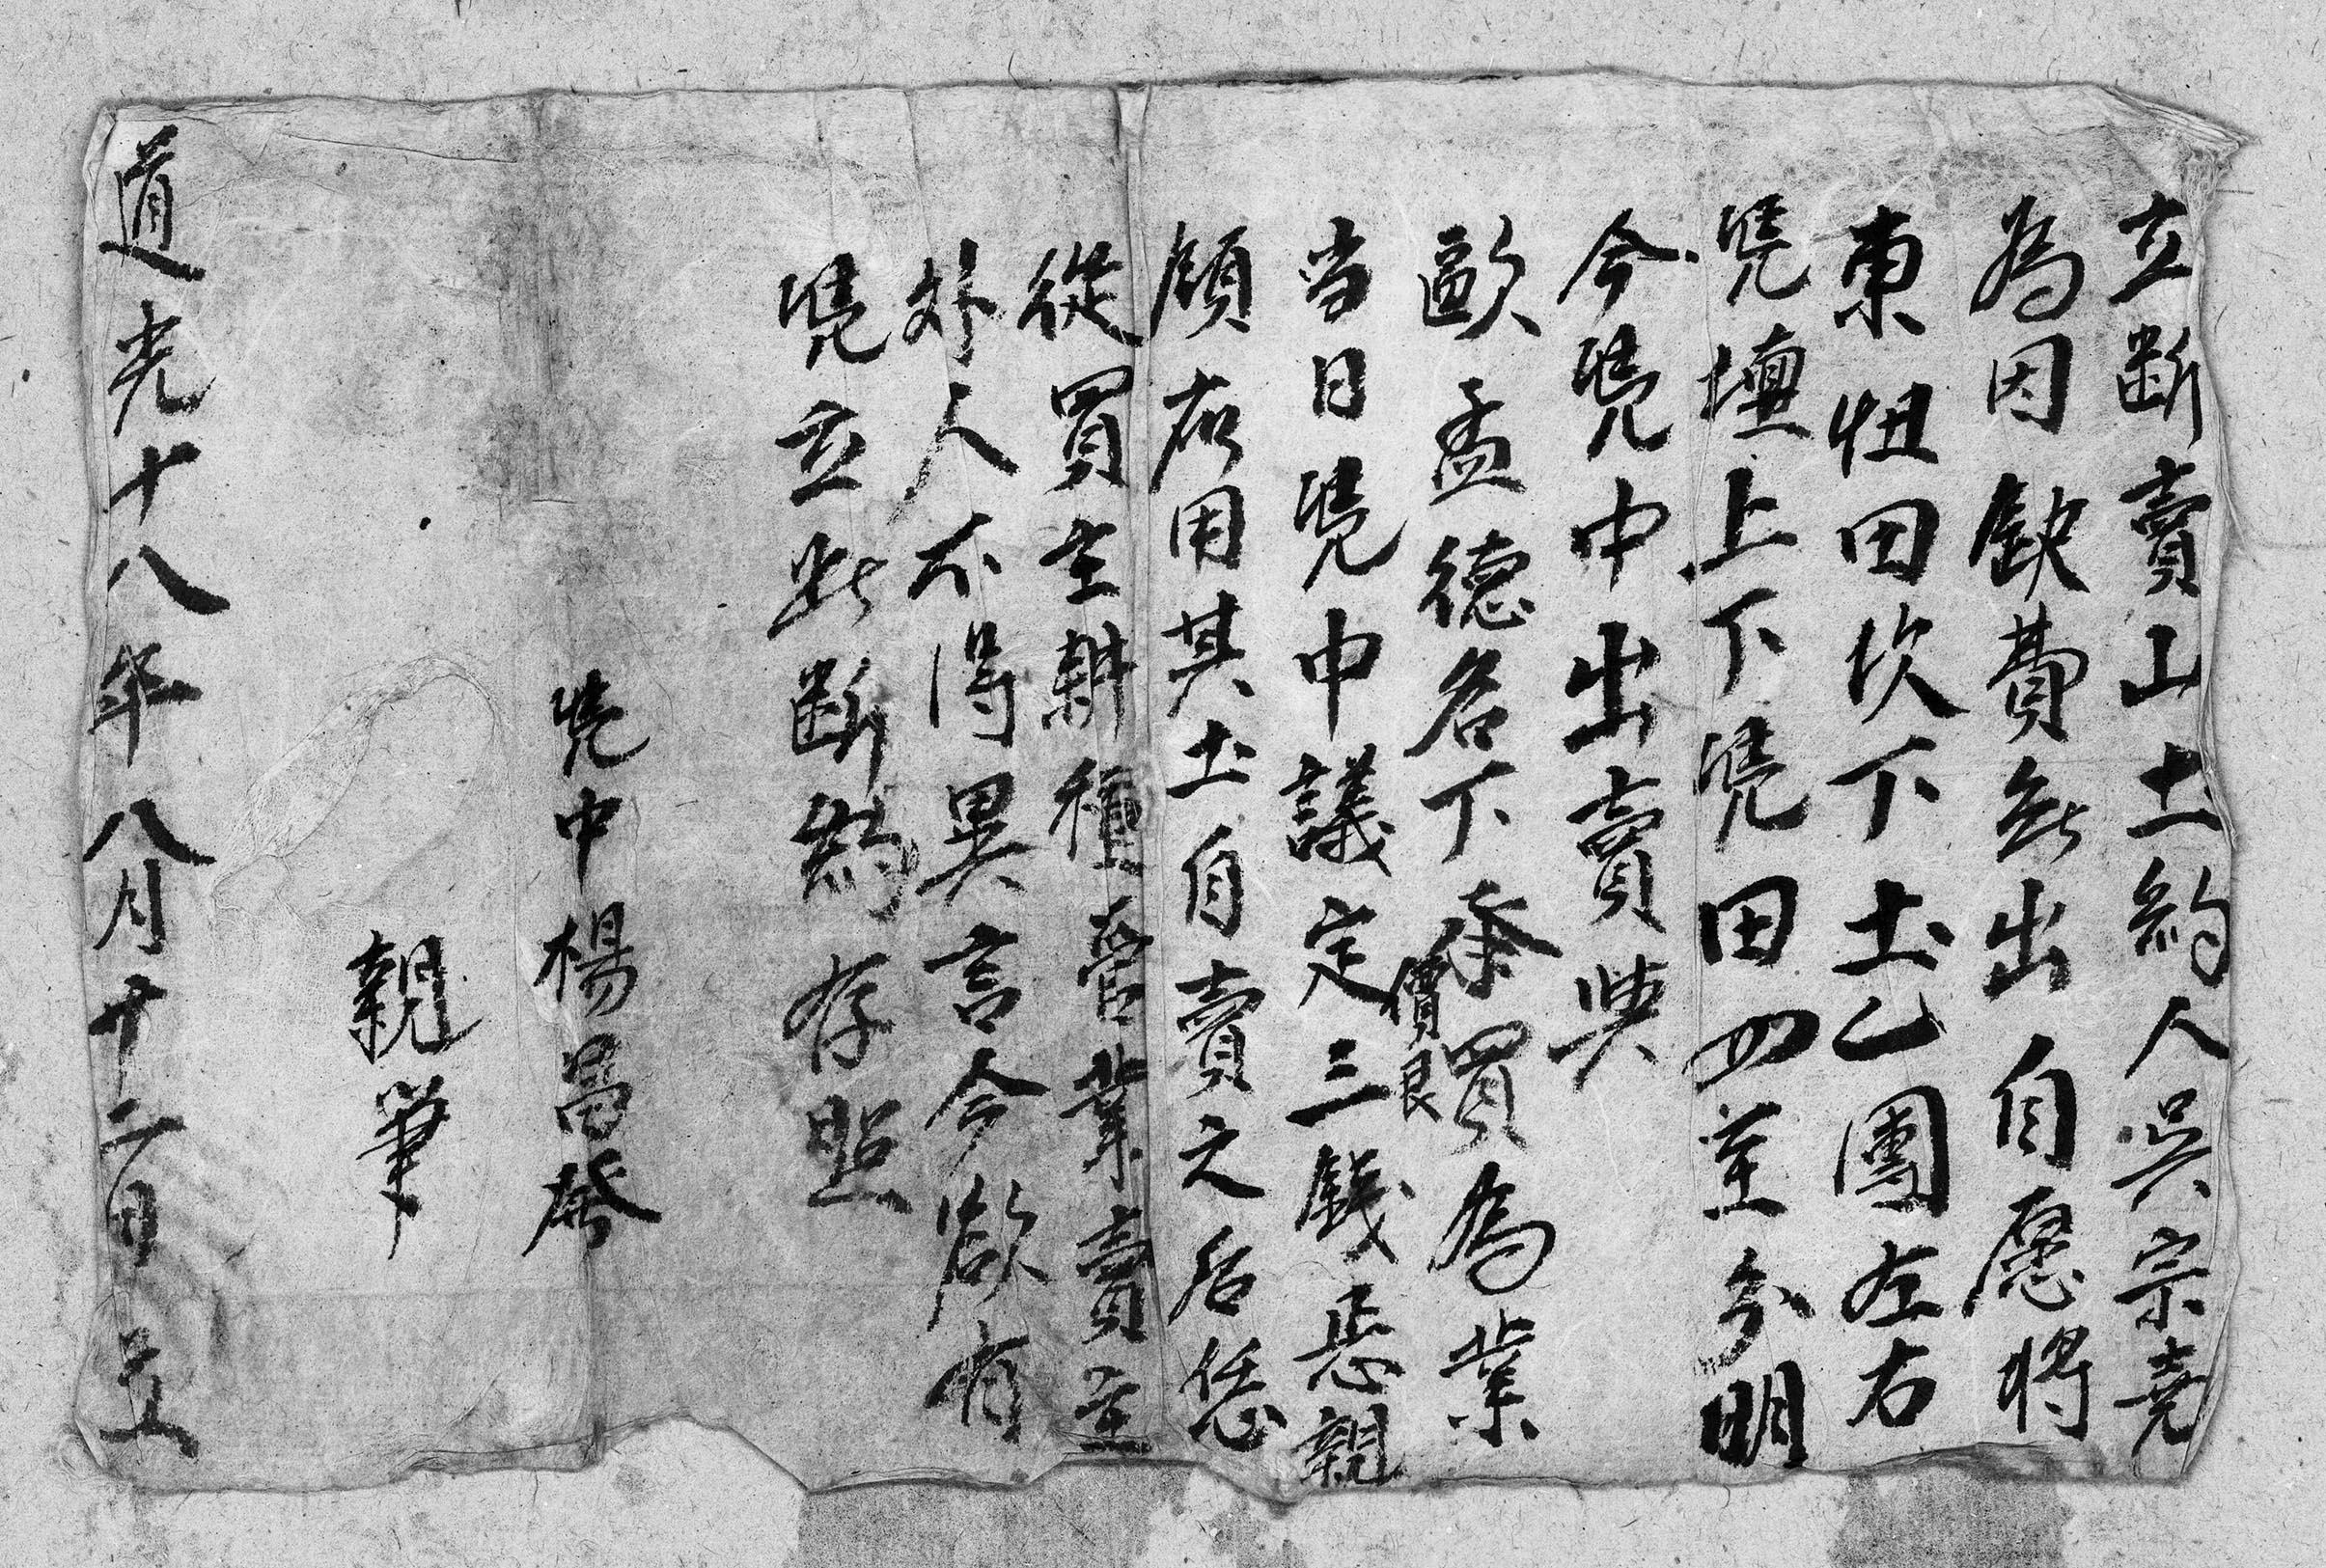 立断賣山土約人吳宗堯
為因缺費無出自愿将
東忸田坎下土乙團左右
凴壇上下凴田四至分明
今凴中出賣與
歐孟德名下承買為業
當日凴中議定價艮三錢正親
領應用其土自賣之后恁
從買主耕種管業賣主
外人不得異言今欲有
凴立此断約存照
凴中楊昌發
親筆
道光十八年八月十二日立